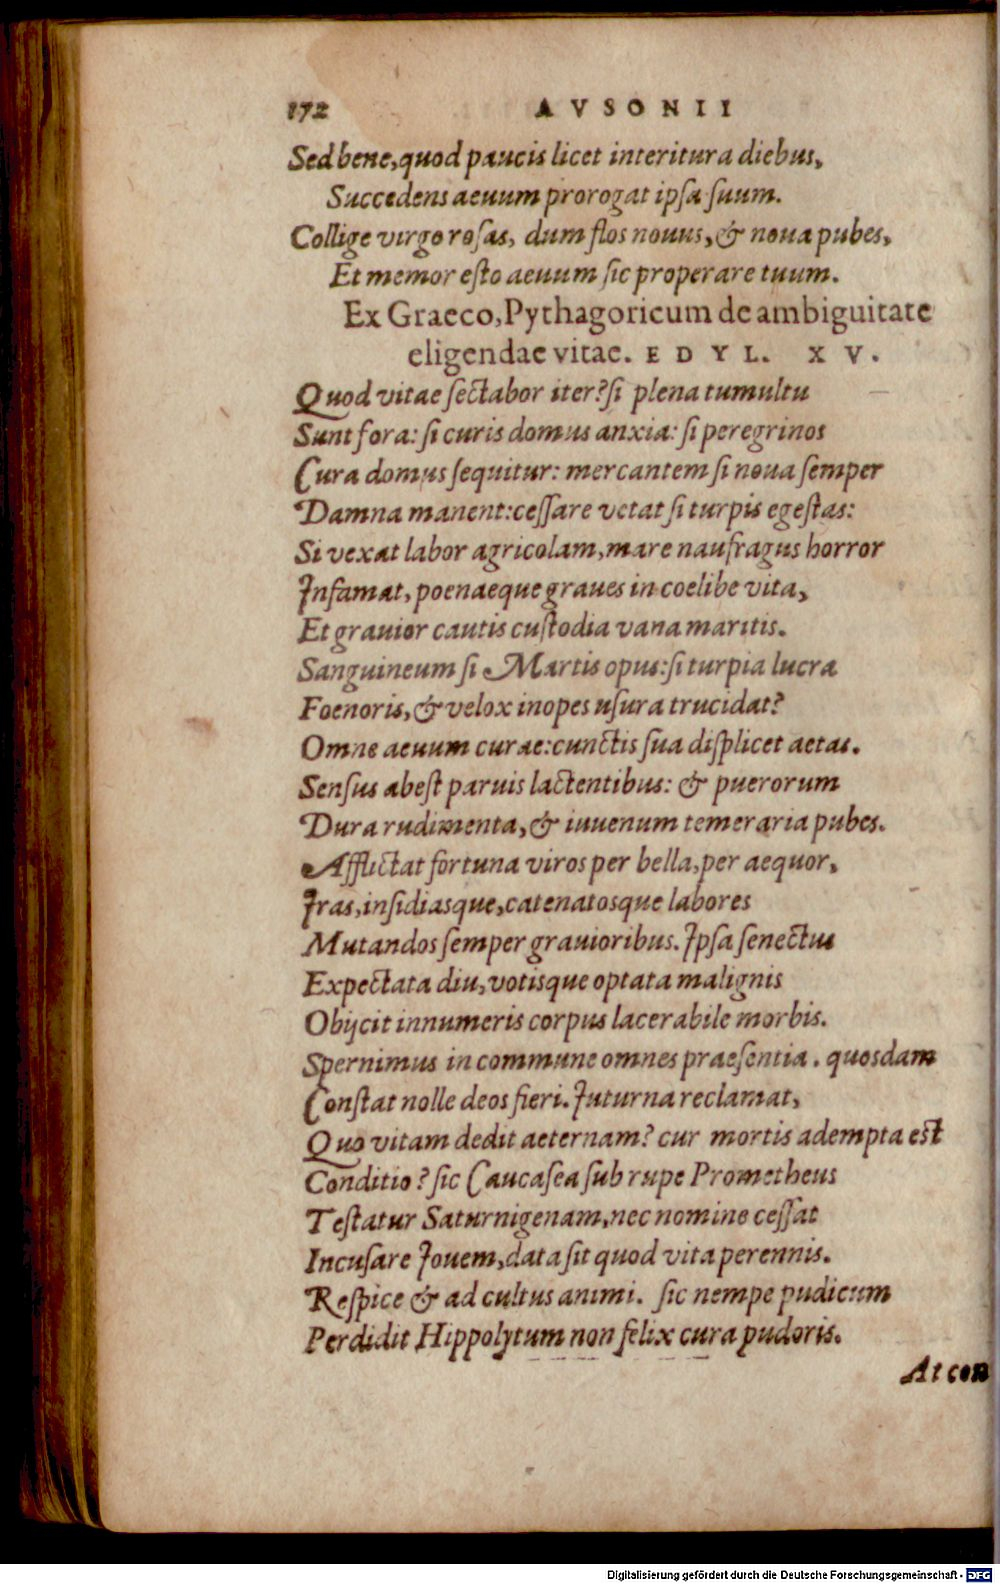 172 AVSONII
Sed bene, quod paucis licet interitura diebus,
Succedens aeuum prorogat ipsa suum.
Collige virgo rosas, dum flos nouus, & noua pubes,
Et memor esto aeuum sic properare tuum.
Ex Graeco, Pythagoricum de ambiguitate
eligendae vitae. EDYL. XV.
Quod vitae sectabor iter? si plena tumultu
Sunt fora: si curis domus anxia: si peregrinos
Cura domus sequitur: mercantem si noua semper
Damna manent: cessare vetat si turpis egestas:
Si vexat labor agricolam, mare naufragus horror
Infamat, poenaeque graues in coelibe vita,
Et grauior cautis custodia vana maritis.
Sanguineum si Martis opus: si turpia lucra
Foenoris, & velox inopes usura trucidat?
Omne aeuum curae: cunctis sua displicet aetas.
Sensus abest paruis lactentibus: & puerorum
Dura rudimenta, & iuuenum temeraria pubes.
Afflictat fortuna viros per bella, per aequor,
Iras, insidiasque, catenatosque labores
Mutandos semper grauioribus. Ipsa senectus
Expectata diu, votisque optata malignis
Obijcit innumeris corpus lacerabile morbis.
Spernimus in commune omnes praesentia. quosdam
Constat nolle deos fieri. Iuturna reclamat,
Quo vitam dedit aeternam? cur mortis adempta est
Conditio? sic Caucasea sub rupe Prometheus
Testatur Saturnigenam, nec nomine cessat
Incusare Iouem, data sit quod vita perennis.
Respice & ad cultus animi. sic nempe pudicum
Perdidit Hippolytum non felix cura pudoris.
At con
Digitalisierung gefördert durch die Deutsche Forschungsgemeinschaft - DFG